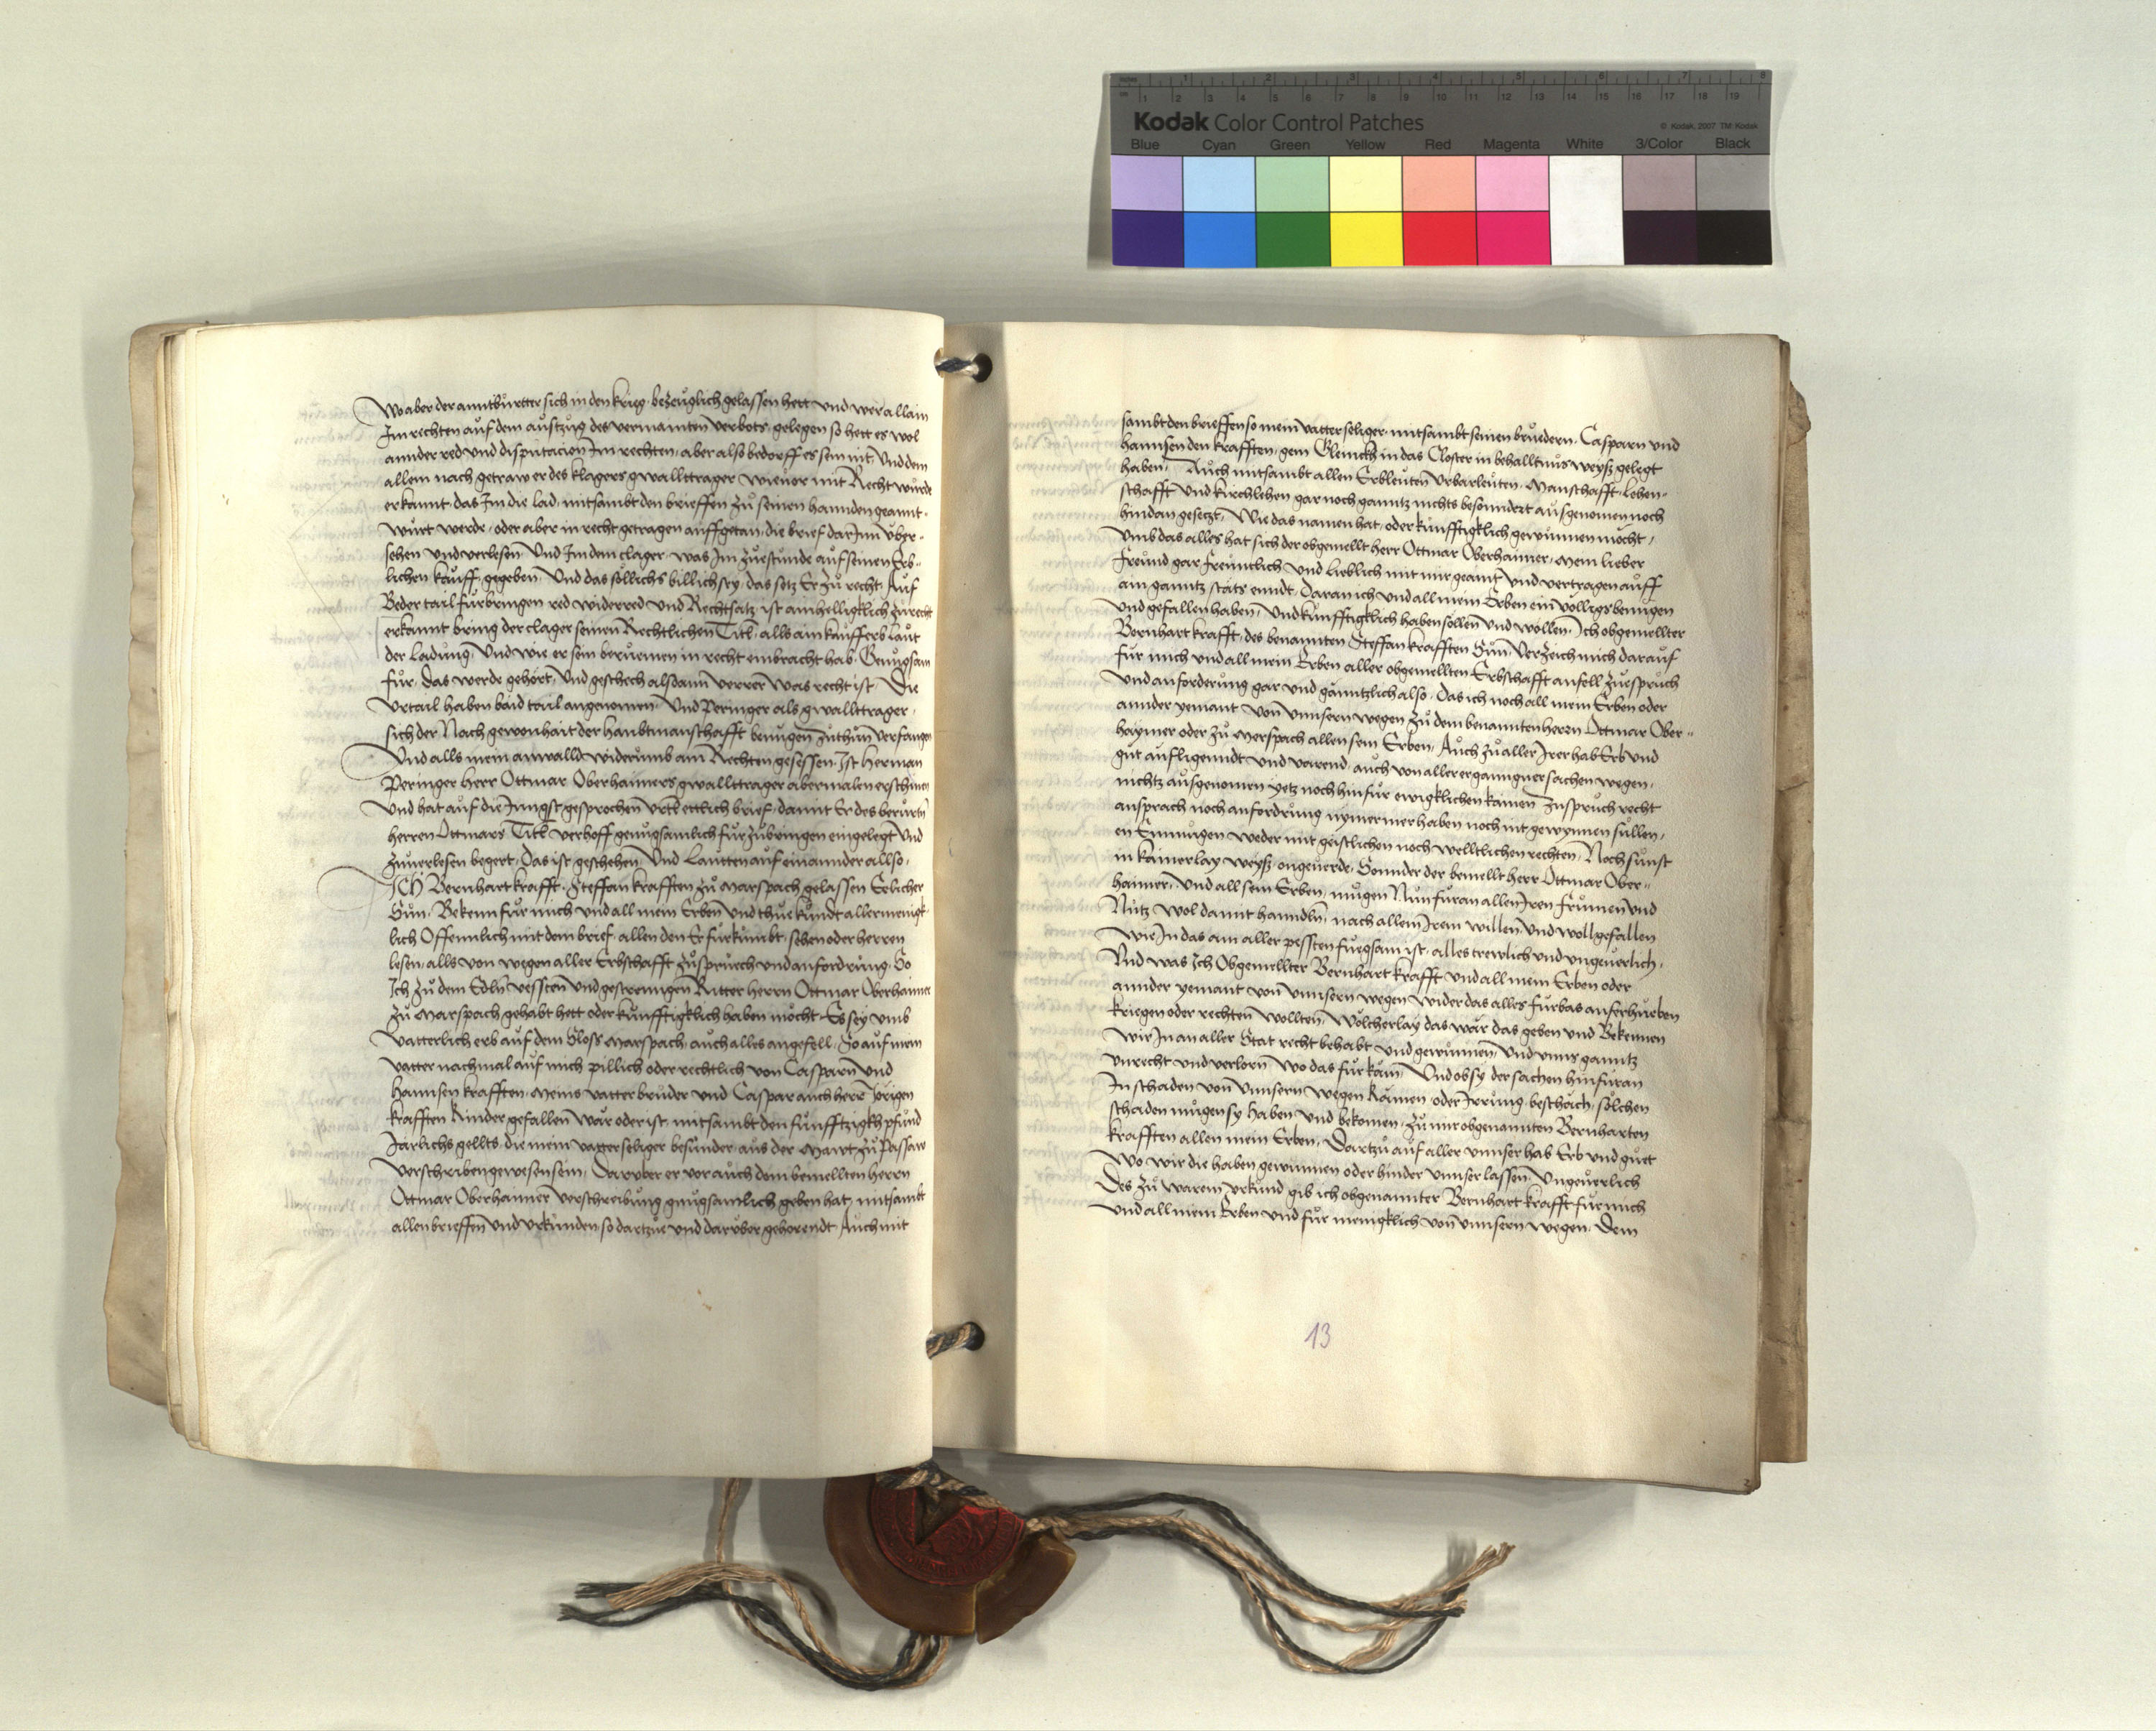 inches 1 2 3 4 5 6 7 8
cm 1 2 3 4 5 6 7 8 9 10 11 12 13 14 15 16 17 18 19
Kodak Color Control Patches © Kodak, 2007 TM: Kodak
Blue Cyan Green Yellow Red Magenta White 3/Color Black
Wo aber der anntburtter sich in den krieg bezeuglich gelassen hett Und wer allain
Im rechten auf dem austzug des vermainten verbots gelegen so hett es wol
annder red und disputacion Im rechten, aber also bedorff es sein nit, Und dem
allem nach getraw er des klagers gwallttrager wie vor mit Recht wurde
erkannt, das Im die lad, mitsambt den brieffen zu seinen hannden geannt-
wurt werde, oder aber in recht getragen auffgetan, die brief darInn uber-
sehen und verlesen Und Im dem clager, was Im zuestunde auf seinen Erb-
lichen kauff, gegeben, Und das sollichs billich sey, das setz Er zu recht, Auf
Beder tail furbringen red widerred und Rechtsatz, ist ainhelligklich zu recht
erkannt bring der clager seinen Rechtlichen Titl, alls ain kauffers laut
der Ladung, Und wie er sein beruemen in recht einbracht hab, Genugsam
fur, das werde gehort, Und geschech alsdann verrer was recht ist, Die
Urtail haben baid tail angenomen Und Peringer als gwallttrager,
sich der Nach gewonhait der haubtmanschafft benugen zuthun verfangen
Und alls mein anwalld widerumb am Rechten gesessen, Ist Herman
Peringer herr Ottmar Oberhaimers gwallttrager abermalen erschinen
Und hat auf die Jungst gesprochen urtl ettlich brief, damit Er des berurtn
herren Ottmars Titl verhoff genugsamlich fur zubringen eingelegt Und
zuuerlesen begert, Das ist geschehen Und Lautten auf einannder allso,
Ich Bernhart krafft, Steffan krafften zu Marspach gelassen Erlicher
Sun, Bekenn fur mich und all mein Erben Und thue kundt allermenigk-
lich Offennlich mit dem brief, allen den Er furkumbt, sehen oder horren
lesen, alls von wegen aller Erbschafft zuspruech und anfordrung, So
Ich zu dem Edln vessten und gestrenngen Ritter herrn Ottmar Oberhaimer
zu Marspach gehabt hett oder kunfftigklich haben mocht, Es sey umb
Vatterlich erb auf dem Sloss Marspach, auch alles angefell, So auf mein
vatter nachmal auf mich pillich oder rechtlich von Casparn Und
hannsen krafften, meins vatter bruder und Caspar auch herr Jorigen
krafften kinder gefallen war oder ist, mitsambt den funfftzigkh pfund
Jarlichs gellts, die mein vatter seliger besunder, aus der Mawt zu Passaw
Verschriben gewesen sein, Daruber er vor auch dem bemellten herrn
Ottmar Oberhaimer verschreibung gnugsamlich geben hat, mitsambt
allen brieffen und urkunden so dartzue und daruber gehorendt, Auch mit
sambt den brieffen so mein vatter seliger, mitsambt seinen bruedern, Casparn und
hannsen den krafften, gem Glenickh in das Closter in behalltnus weyß gelegt
haben, Auch mitsambt allen Erbleuten Urbarleuten, Manschafft, Lehen-
schafft Und kirchlehen gar noch ganntz nichts besonndert ausgenomen noch
hindan gesetzt, Wie das namen hat, oder kunfftigklich gewinnen mocht,
Umb das alles hat sich der obgemellt herr Ottmar Oberhaimer, Mein lieber
Freund gar freuntlich Und lieblich mit mir geaint Und vertragen auff
ain ganntz stats ennd, Daran ich und all mein Erben ein volligs benugen
Und gefallen haben, Und kunfftigklich haben sollen Und wollen, Ich obgemellter
Bernhart krafft, des benannten Steffan krafften Sun, Verzeich mich darauf
fur mich und all mein Erben aller obgemellten Erbschafft anfell zuespruch
Und anforderung gar und ganntzlich also, Das ich noch all mein Erben oder
annder yemant von unnsern wegen zu dem benannten herrn Ottmar Ober-
haymer oder zu Merspach allen sein Erben, Auch zu aller Irer hab Erb und
gut aufligenndt und varend, auch von aller erganngner sachen wegen,
nichtz ausgenomen yetz noch hinfur ewigklichen kainen zuspruch recht
ansprach noch anfordrung nymermer haben noch nit gewynnen sullen,
en mugen weder mit geistlichen noch welltlichen rechten, Noch sunst
in kainerlay weyß, ongeuerde, Sonnder der bemellt herr Ottmar Ober-
haimer, Und all sein Erben, mugen Nun furan allen Iren frumen und
Nutz wol damit hanndln, nach allem Irem willen Und wollgefallen
wie In das am aller pessten fuegsam ist, alles trewlich und ungeuerlich,
Und was Ich Obgemellter Bernhart krafft Und all mein Erben oder
annder yemant von unnsern wegen wider das alles furbas anferhueben
kriegen oder rechten wollten, Wolcherlay das war das geben und Bekennen
wir In an aller Stat recht behabt und gewunnen, Und unns ganntz
unrecht und verlorn wo das fur kam, Und ob sy der sachen hinfuran
In schaden von unnsern wegen kamen, oder Irrung beschach, solchen
schaden mugen sy haben Und bekomen, zu mir obgenannten Bernharten
krafften allen mein Erben, Dartzu auf aller unnser hab Erb und guet
Wo wir die haben gewunnen oder hinder unnser lassen, Ungeuerlich
Des zu warem urkund gib ich obgenannter Bernhart krafft fur mich
Und all mein Erben und fur menigklich von unnsern wegen, Dem
13